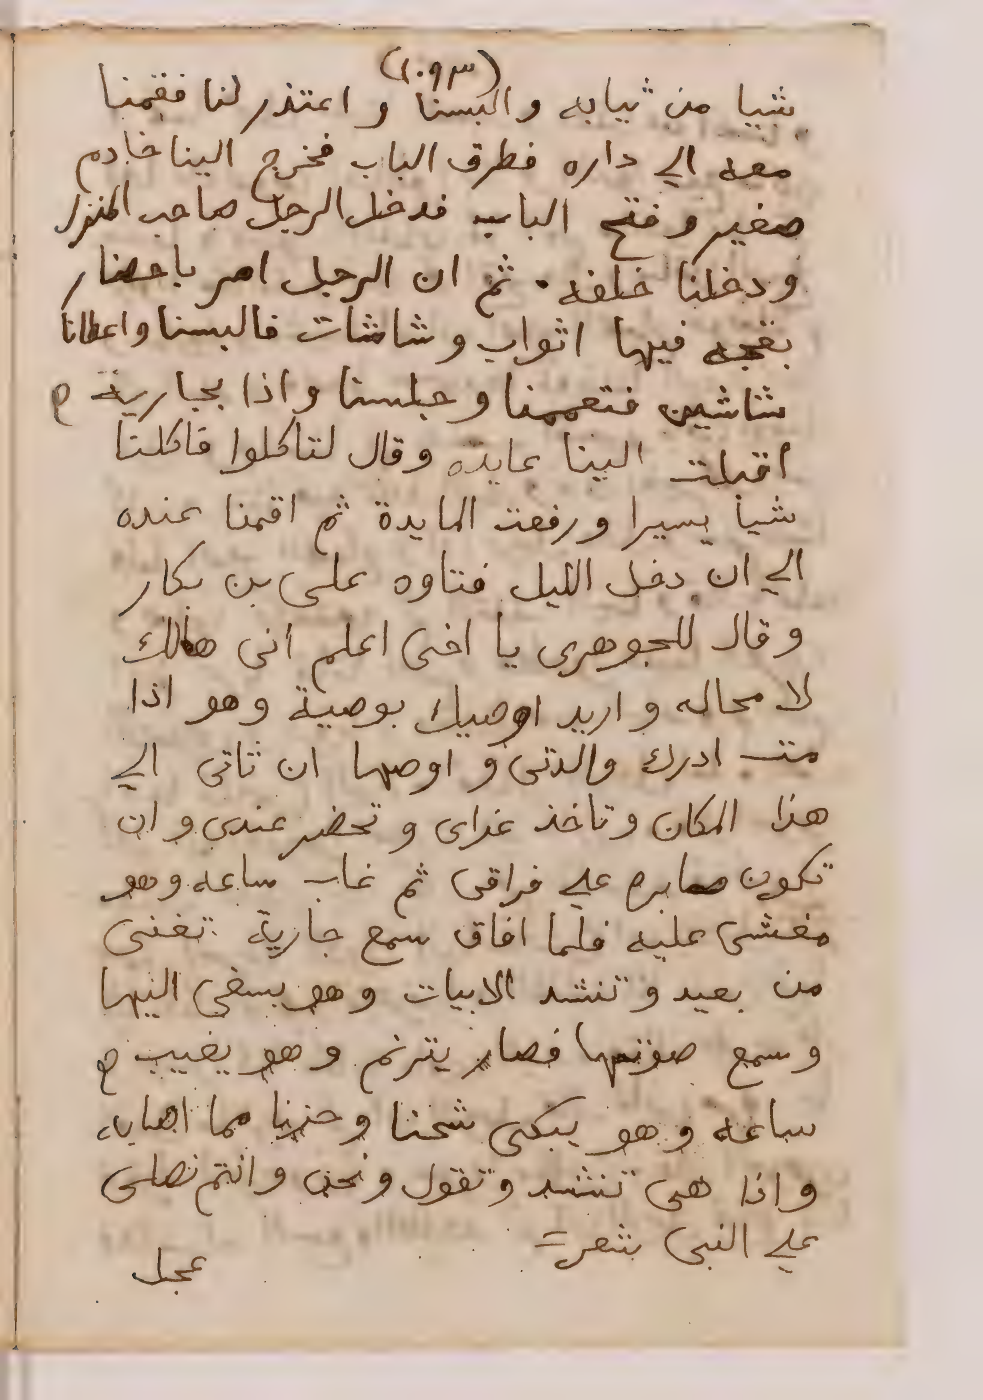 (١٠٩٣)
شيا من ثيابه والبسنا واعتذر لنا فقمنا
معه الي داره فطرق الباب فخرج الينا خادم
صغير وفتح الباب فدخل الرجل صاحب المنزل
ودخلنا خلفه . ثم ان الرجل امر باحضار
بقجه فيها اثواب وشاشات فالبسنا واعطانا
شاشين فتعممنا وجلسنا واذا بجارية
اقبلت الينا بمايده وقال لنا كلوا فاكلنا
شيا يسيرا ورفعت المايدة ثم اقمنا عنده
الي ان دخل الليل فتاوه على بن بكار
وقال للجوهرى يا اخى اعلم انى هالك
لا محاله واريد اوصيك بوصية وهو اذا
مت ادرك والدتى و اوصها ان تاتى الي
هذا المكان وتاخذ عزاى و تحضر عندى و ان
تكون صابره علي فراقى ثم غاب ساعه وهو
مغشى عليه فلما افاق سمع جارية تغنى
من بعيد وتنشد الابيات وهو يصغى اليها
وسمع صوتها فصار يترنم وهو يغيب
ساعه وهو يبكى شجنا وحزنا مما اصابه
واذا هى تنشد وتقول ونحن وانتم نصلى
علي النبى شعر
عجل